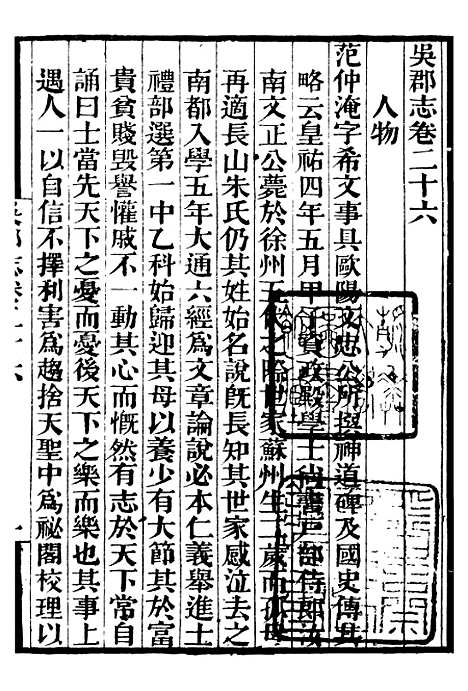 吳郡志卷二十六
人物
范仲淹字希文事具歐陽文忠公所撰神道碑及國史傳其
略云皇祐四年五月甲子資政殿學士尚書戶部侍郎汝
南文正公薨於徐州五代之際世家蘇州生二歲而孤母
再適長山朱氏仍其姓始名說旣長知其世家感泣去之
南都入學五年大通六經爲文章論說必本仁義舉進士
禮部選第一中乙科始歸迎其母以養少有大節其於富
貴貧賤毀譽懽戚不一動其心而慨然有志於天下常自
誦曰士當先天下之憂而憂後天下之樂而樂也其事上
遇人一以自信不擇利害爲趨捨天聖中爲祕閣校理以
吳郡志卷二十六
一